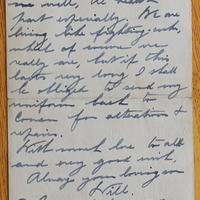 me well, at least
part especially. We are
living like fighting-cocks,
which of course we
really are, but if this
lasts very long I shall
be obliged to send my
uniform back to
for alteration &
repairs.
With much love to all
and every good wish,
Always your loving son
Will.